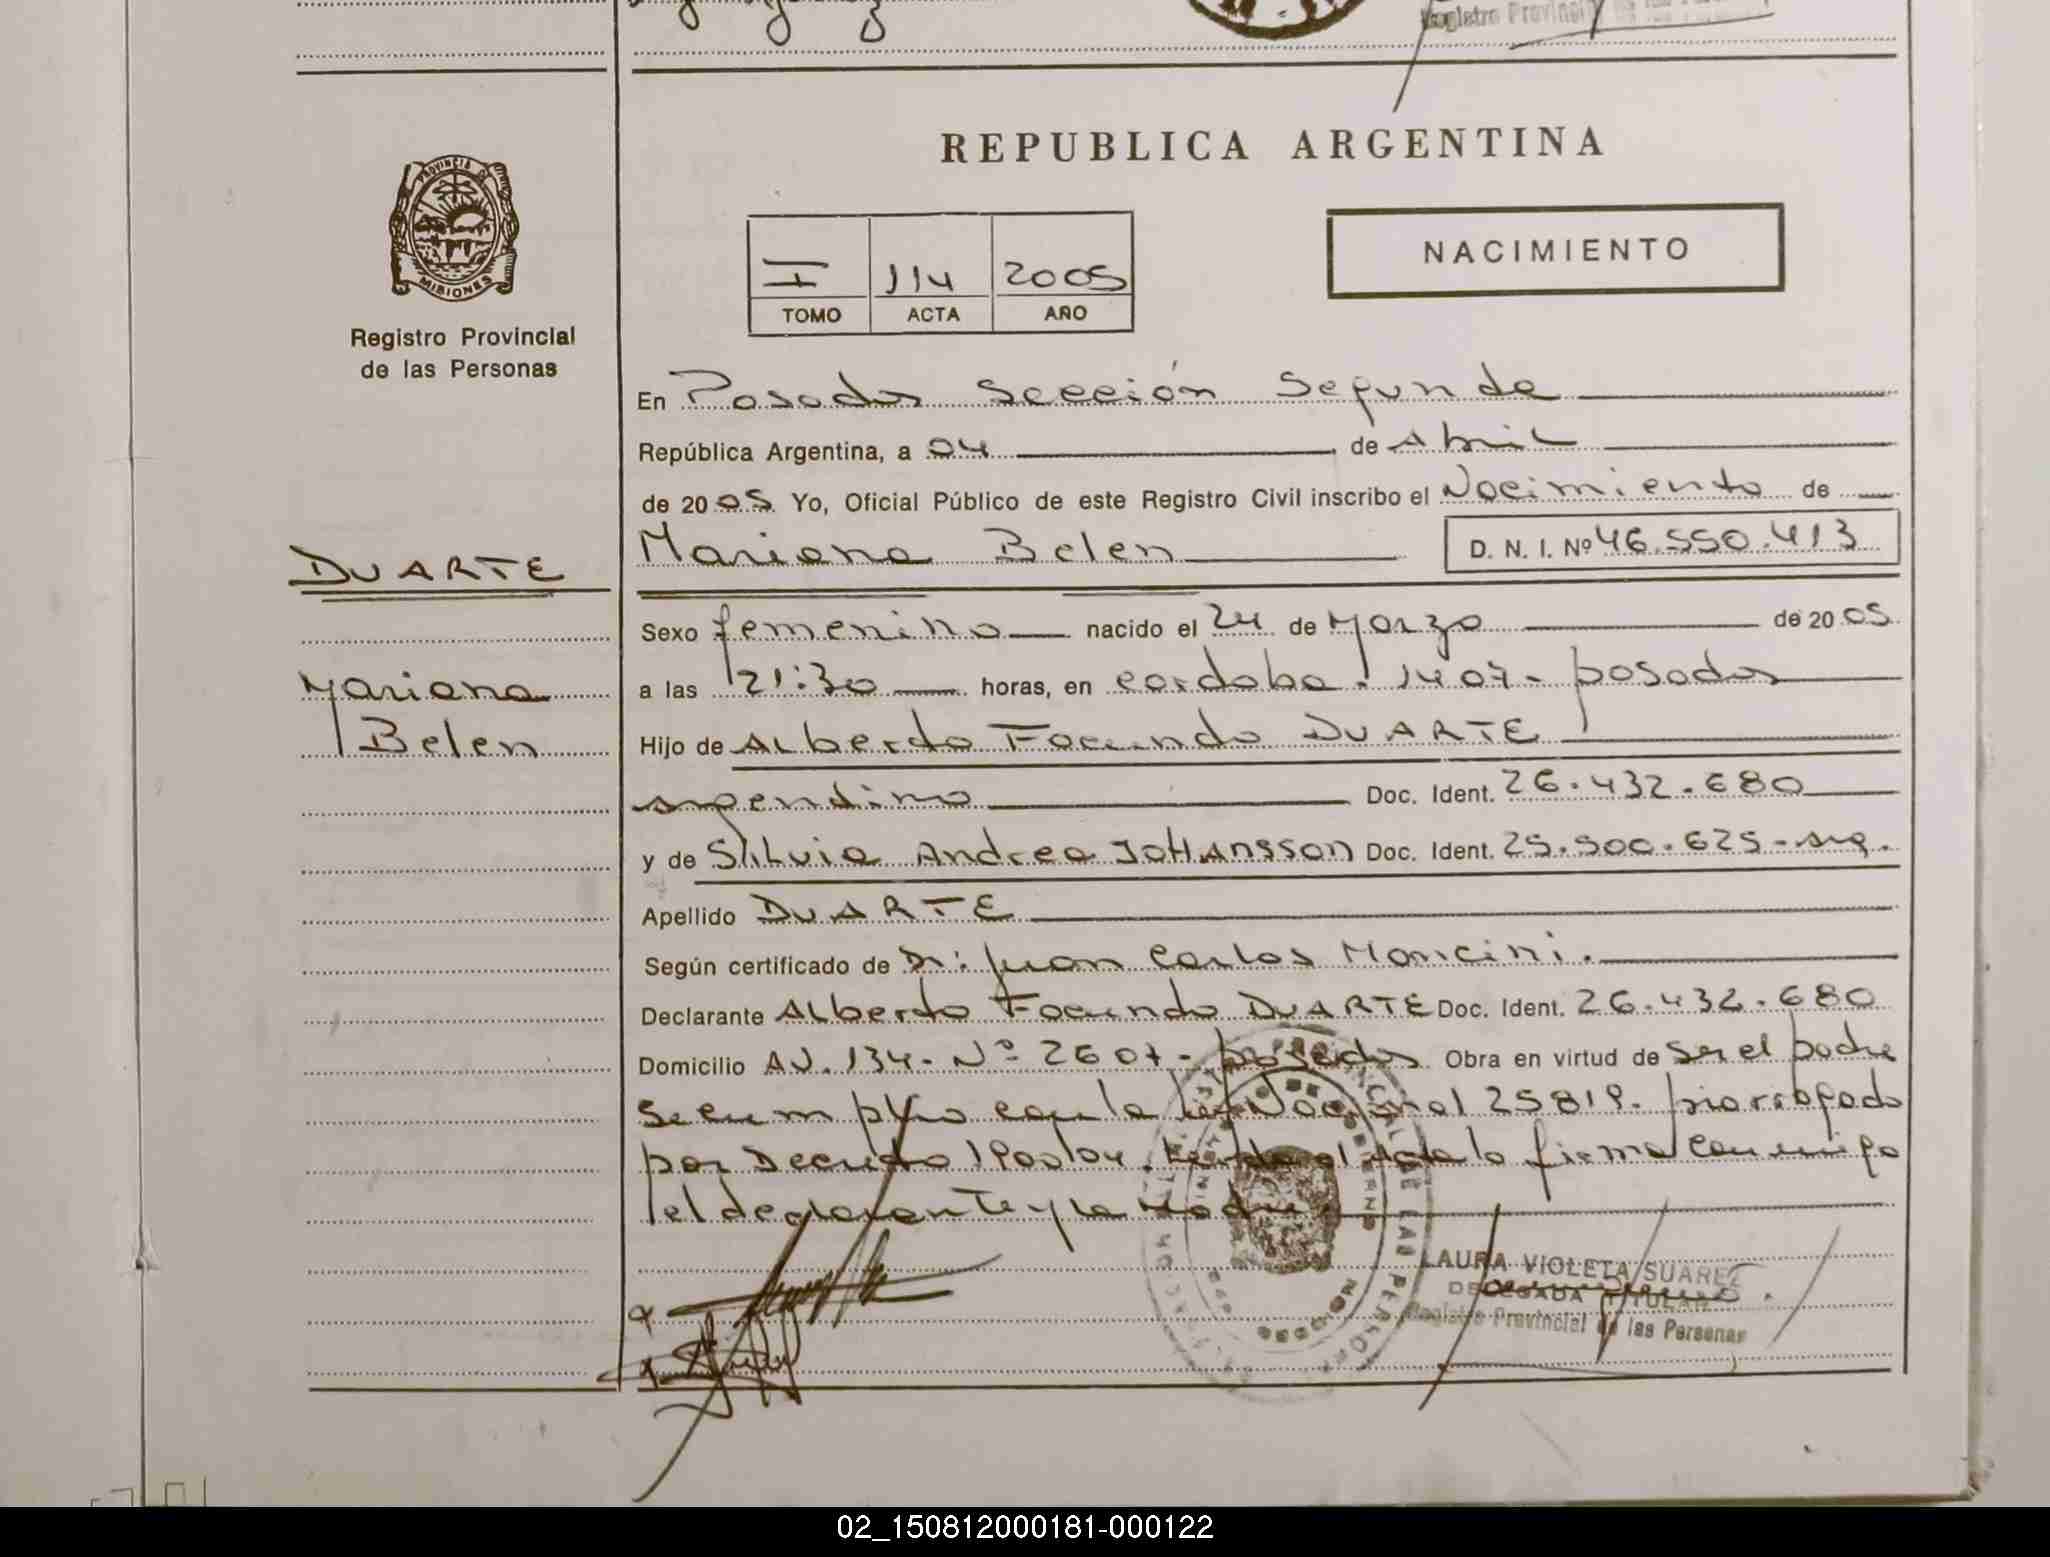 REPUBLICA ARGENTINA
PROVINCIA DE
MISIONES
Registro Provincial
de las Personas
I 114 2005
TOMO ACTA AÑO
NACIMIENTO
En Posadas Sección Segunda
República Argentina, a 04 de Abril
de 2005 Yo, Oficial Público de este Registro Civil inscribo el Nacimiento de
DUARTE
Mariana Belen D. N. I. Nº 46.550.413
Sexo femenino nacido el 24 de Marzo de 2005
Mariana
Belen
a las 21:30 horas, en cordoba. 1407- posadas
Hijo de Alberto Facundo DUARTE
argentino Doc. Ident. 26.432.680
y de Silvia Andrea JOHANSSON Doc. Ident. 25.900.625-arg.
Apellido DUARTE
Según certificado de Dr: Juan Carlos Mancini.
Declarante Alberto Facundo DUARTE Doc. Ident. 26.432.680
Domicilio AV. 134- Nº 2607- posadas Obra en virtud de ser el padre
se cumplio con la ley Nacional 25819. prorrogado
por Decreto 1900/04. leida el Acta la firma conmigo
el declarante y la Madre
LAURA VIOLETA SUAREZ
DELEGADA TITULAR
Registro Provincial de las Personas
02_150812000181-000122